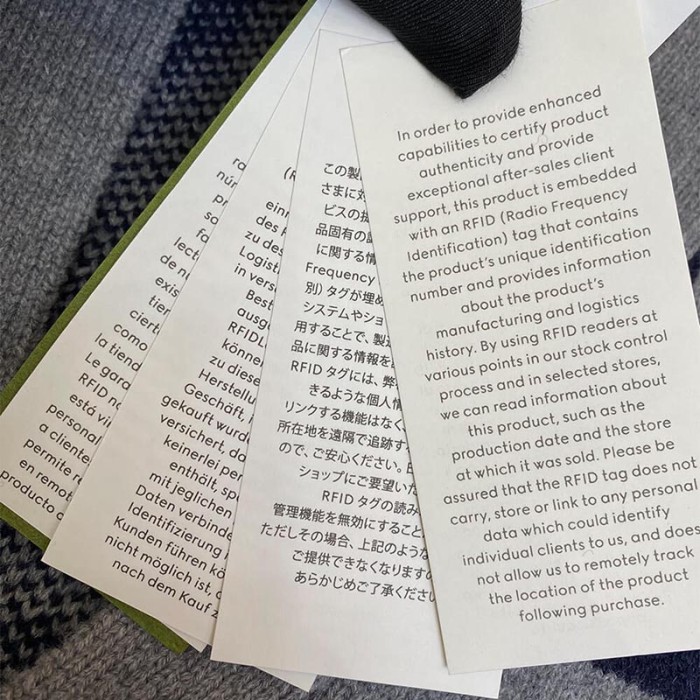 In order to provide enhanced
capabilities to certify product
authenticity and provide
exceptional after-sales client
support, this product is embedded
with an RFID (Radio Frequency
Identification) tag that contains
the product's unique identification
number and provides information
about the product's
manufacturing and logistics
history. By using RFID readers at
various points in our stock control
process and in selected stores,
we can read information about
this product, such as the
production date and the store
at which it was sold. Please be
assured that the RFID tag does not
carry, store or link to any personal
data which could identify
individual clients to us, and does
not allow us to remotely track
the location of the product
following purchase.
この製
さまに対
ビスの提
品固有の
に関する情
Frequency
別) タグが埋め
システムやショ
用することで、製造
品に関する情報を
RFID タグには、弊
きるような個人情
リンクする機能はなく
所在地を遠隔で追跡す
ので、ご安心ください。
ショップにご要望いた
RFID タグの読み
管理機能を無効にすること
ただしその場合、上記のような
ご提供できなくなります
あらかじめご了承ください
einr
des
zu des
Logist
in vers
Best
ausg
RFIDL
könne
zu diese
Herstellu
Geschäft,
gekauft wurd
versichert, da
keinerlei per
enthält, sp
mit jeglichen
Daten verbinde
Identifizierung
Kunden führen kö
nicht möglich ist,
nach dem Kauf z
ra
núr
pr
so
fa
lect
de n
exis
tier
ciert
como
la tiend
Le gara
RFID no
está vi
personal
a cliente
permite r
en remot
producto